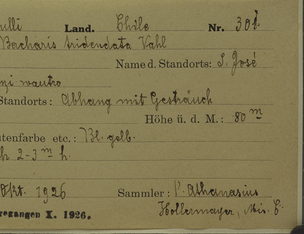 ulli Land. Chile Nr. 301.
Bacharis tridendata Vahl
Name d. Standorts: S. José
Standorts: Abhang mit Gesträuch
Höhe ü. d. M.: 80 m
ütenfarbe etc.: Bl. gelb.
h 2-3 m h.
Okt. 1926 Sammler: P. Athanasius
egangen X. 1926. Hollermayer, Mis. C